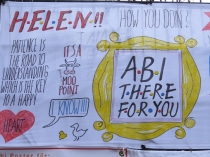 HELEN!!
HOW YOU DOIN?
PATIENCE IS
THE ROAD TO
UNDERSTANDING
WHICH IS THE KEY
TO A HAPPY
HEART
IT'S A
MOO
POINT
I KNOW!!
ABI
THERE
FOR YOU